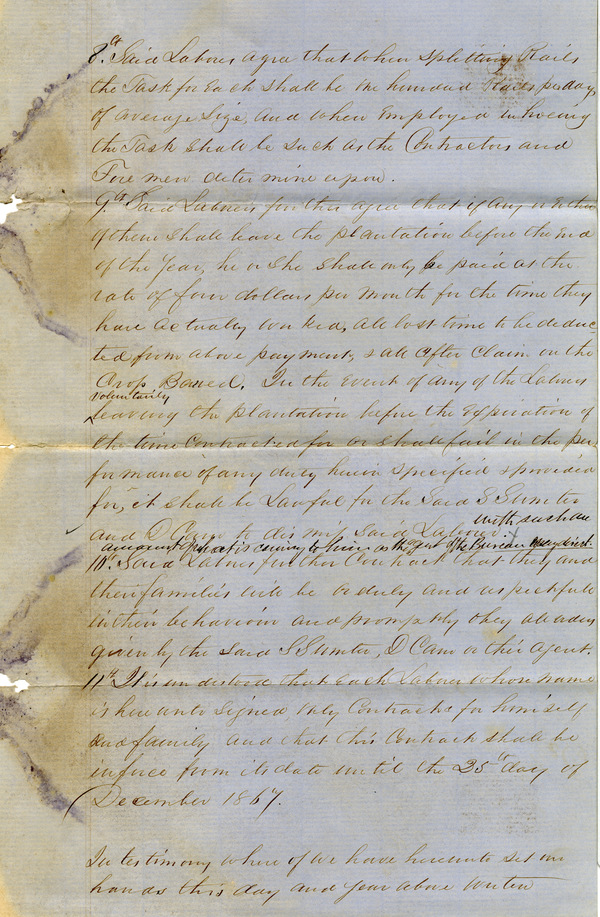 8.th Said Labores agree that when splitting Rails
the Task for Each shall be one hundred Rails per day
of average Size, and when Employed in hoeing
the Task shall be such as the Contractors and
Fore men deter mine upon.
9.th Said Laborers further agree that if any or Either
of them shall leave the plantation before the End
of the Year, he or she shall only be paid at the
rate of four dollars per Month for the time they
have actually worked, all lost time to be deduc-
ted from above payment, & all after claim on the
Crop Barred. In the Event of any of the Labores
voluntarily
leaving the plantation before the Expiration of
the time Contracted for or shall fail in the per
formance of any duty herein specified & provided
for, it shall be Lawful for the Said S Sumter
and D Cam to dis miss Said Laborer. with such an
amount of what is coming to him as the agent of the Bureau may direct.
10.th Said Labores further Contract that they and
their families will be orderly and respectfull
in their behaviour and promptly obey all orders
given by the Said S Sumter, D Cam or their Agent.
11.th It is understood that Each Laborer whose name
is here unto Signed, only Contracts for himself
and family and that this Contract shall be
in force from its date until the 25th day of
December 1867.
In testimony where of we have hereunto set our
hands this day and year above written